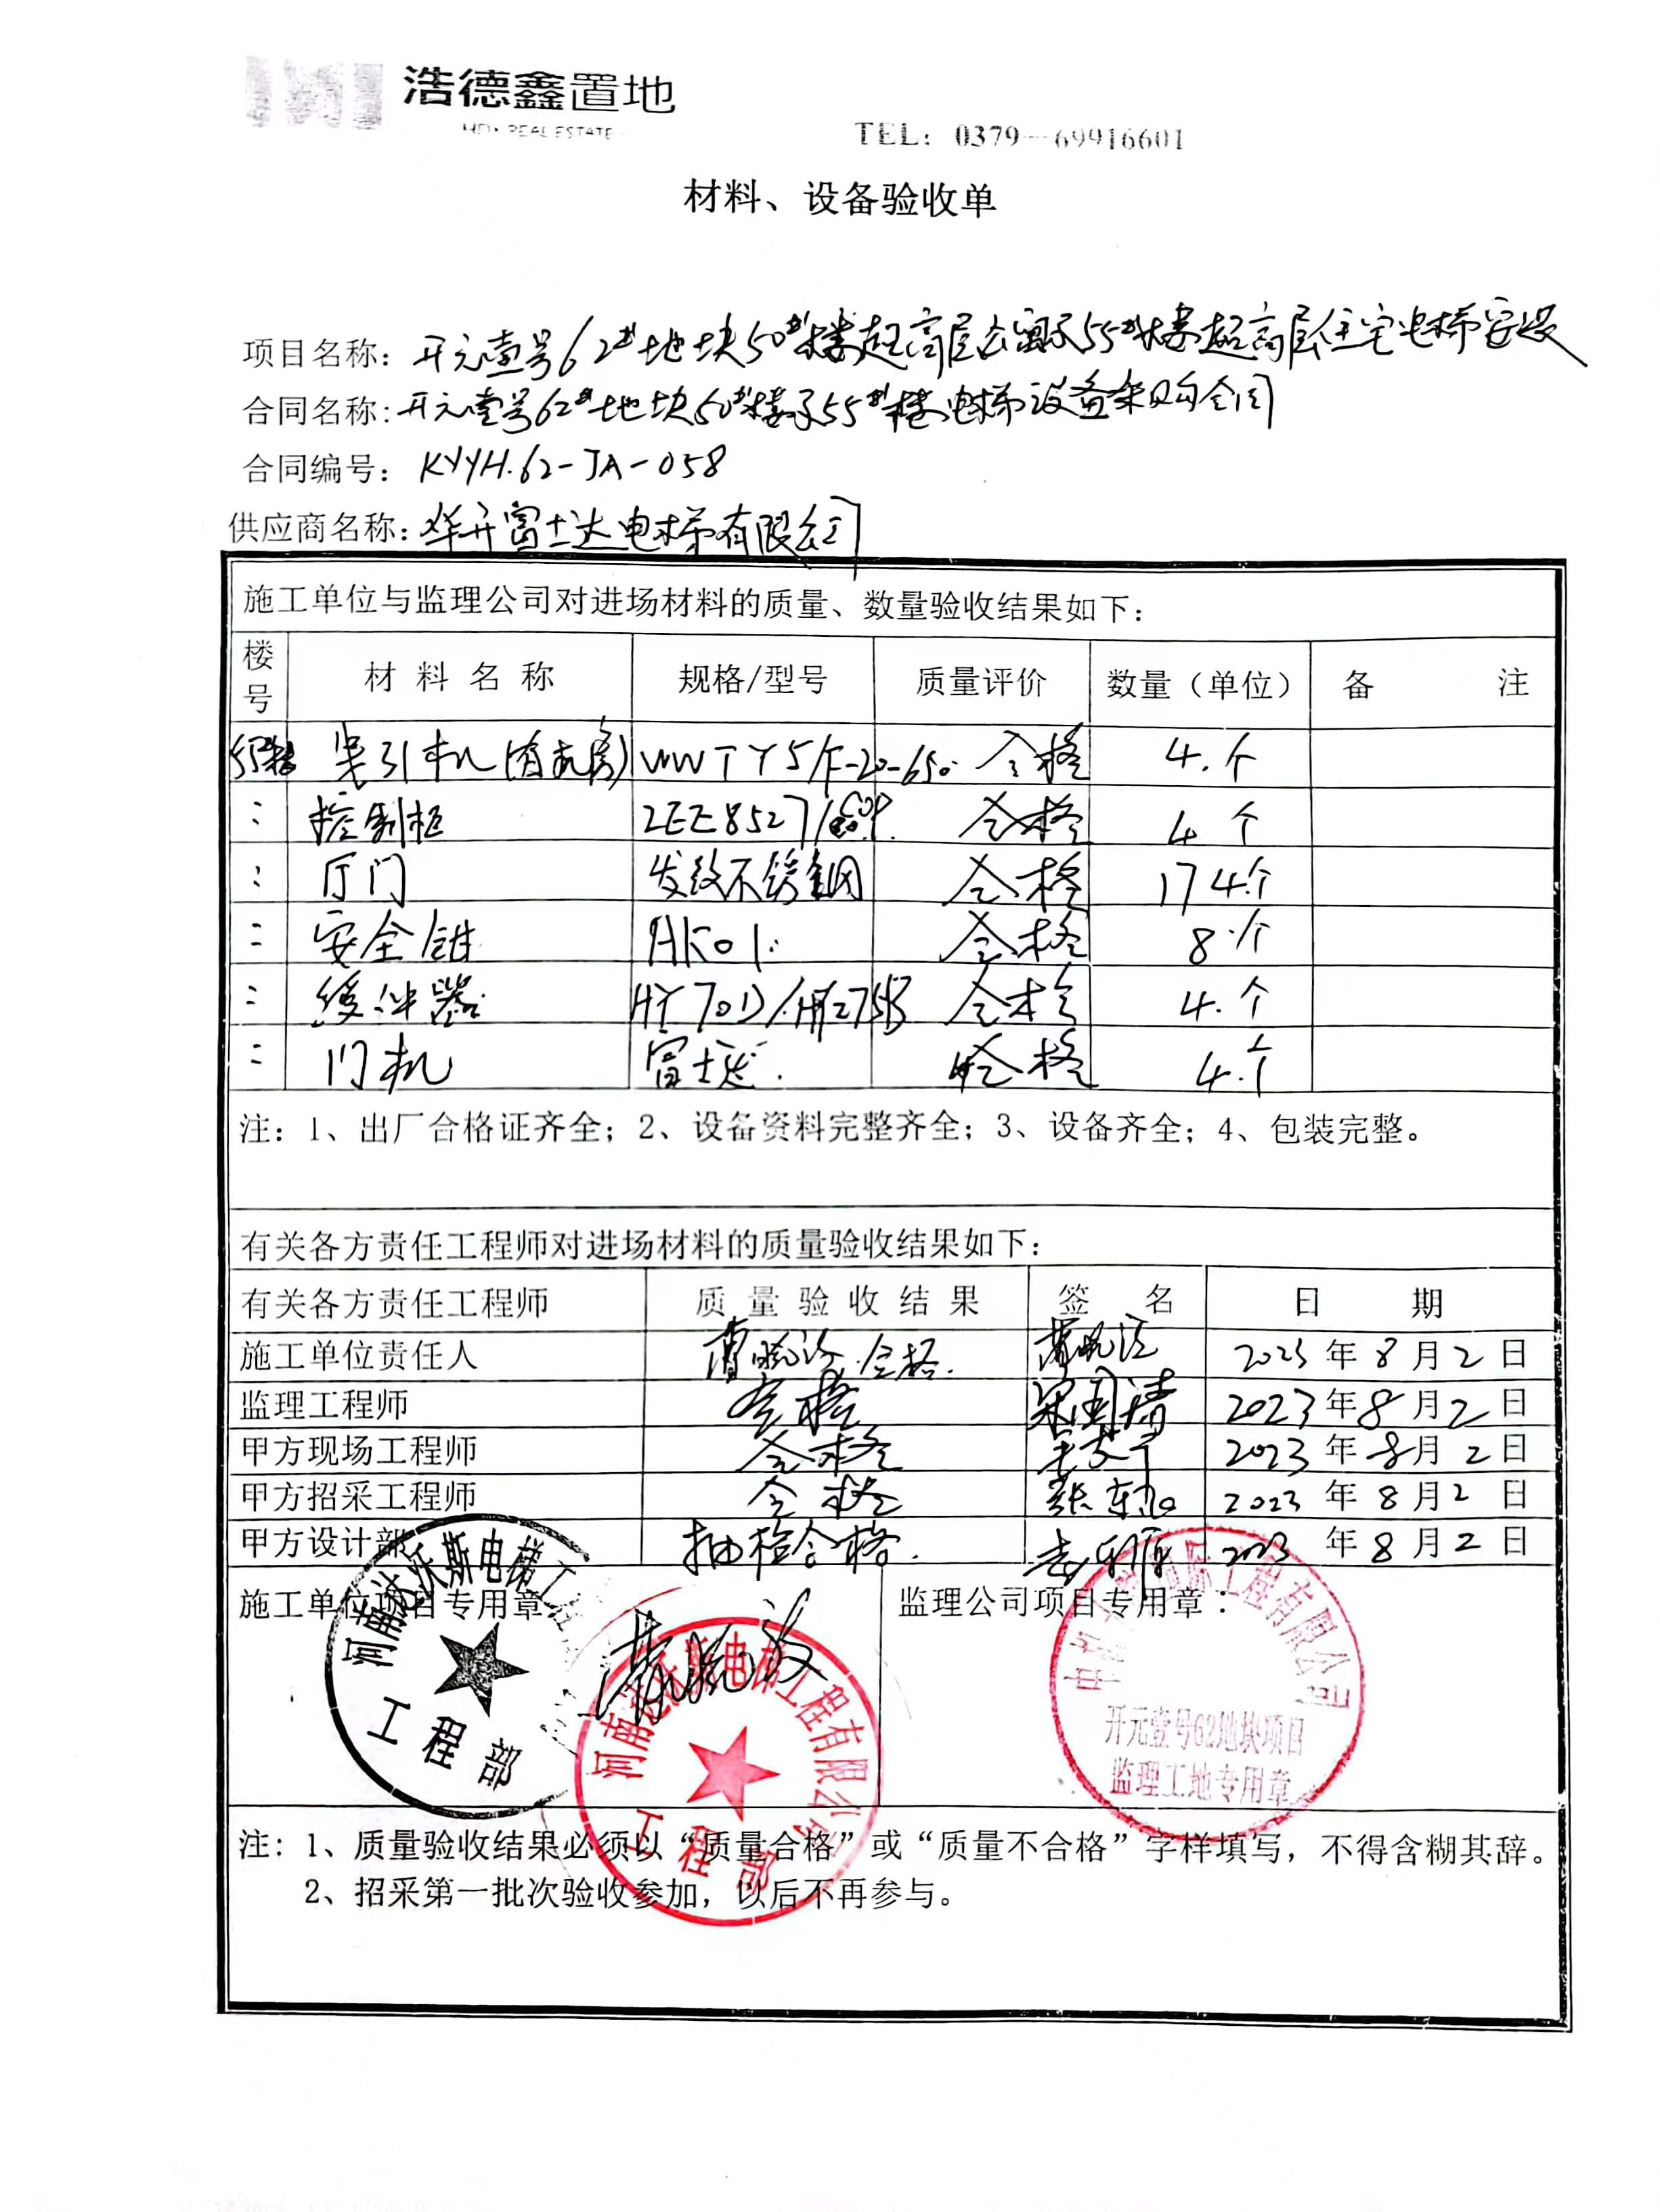 浩德鑫置地
HDX REAL ESTATE
TEL: 0379-69916601
材料、设备验收单
项目名称：开元壹号62#地块50#楼超高层公寓及55#楼超高层住宅电梯安装
合同名称：开元壹号62#地块50#楼及55#楼电梯设备采购合同
合同编号：KYYH.62-JA-058
供应商名称：华升富士达电梯有限公司
施工单位与监理公司对进场材料的质量、数量验收结果如下：
楼号 材料名称 规格/型号 质量评价 数量（单位） 备注
55#楼 曳引机(有机房) WWTY5/F-20-650 合格 4.个
〃 控制柜 合格 4个
〃 厅门 发纹不锈钢 合格 174个
〃 安全钳 合格 8个
〃 缓冲器 合格 4.个
〃 门机 富士达. 合格 4.个
注：1、出厂合格证齐全；2、设备资料完整齐全；3、设备齐全；4、包装完整。
有关各方责任工程师对进场材料的质量验收结果如下：
有关各方责任工程师 质量验收结果 签名 日期
施工单位责任人 合格. 年8月2日
监理工程师 合格 2023年8月2日
甲方现场工程师 合格 2023年8月2日
甲方招采工程师 合格 2023年8月2日
甲方设计部 抽检合格. 2023年8月2日
施工单位项目专用章 监理公司项目专用章：
河南达沃斯电梯工程
工程部
河南达沃斯电梯工程有限公司
工程部
国际工程有限公司
开元壹号62地块项目
监理工地专用章
注：1、质量验收结果必须以“质量合格”或“质量不合格”字样填写，不得含糊其辞。
2、招采第一批次验收参加，以后不再参与。